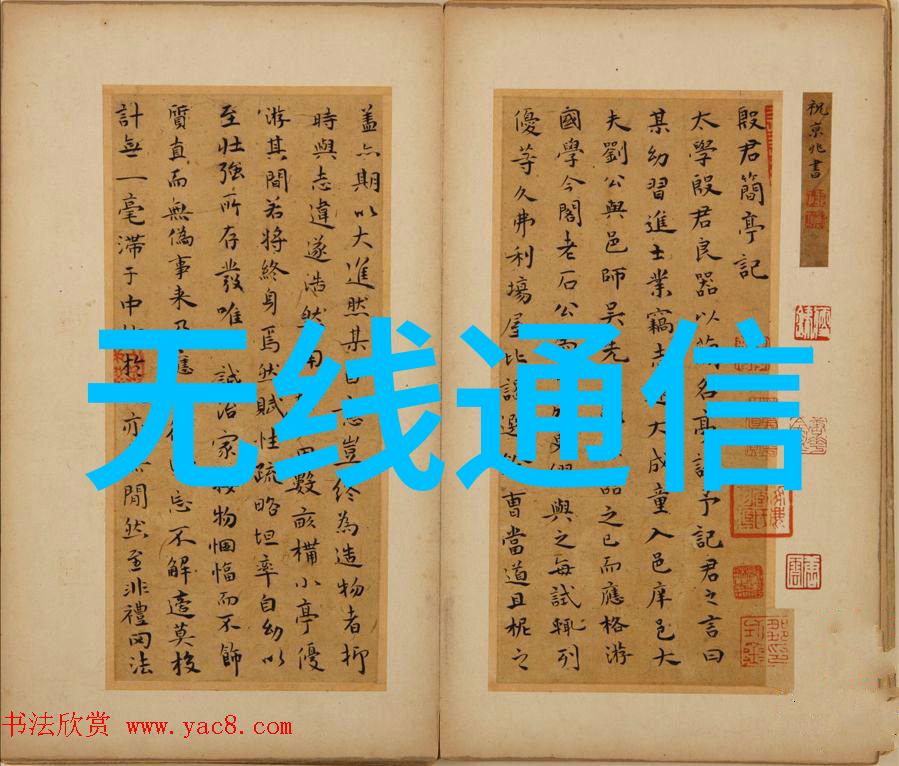 祝京兆書
殷君簡亭記
太學殷君民器以名亭予記君之言曰
某幼習進士業竊志大成童入邑庠邑大
夫劉公與邑師吳先品之已而應格游
國學今閣老石公與之每試輒列
優等久弗利場屋比選曹當道且柅之
蓋亦期以大進然某豈終為造物者抑
時與志違遂浩然數畝構小亭優
游其間若將終身焉然賦性疏略坦率自幼以
至壯強所存發唯誠治家物悃愊而不飾
質直而無偽事来應忘不解莫
計無一毫滯于中於亦閒然至非禮罔法
无线通信
书法欣赏 www.yac8.com